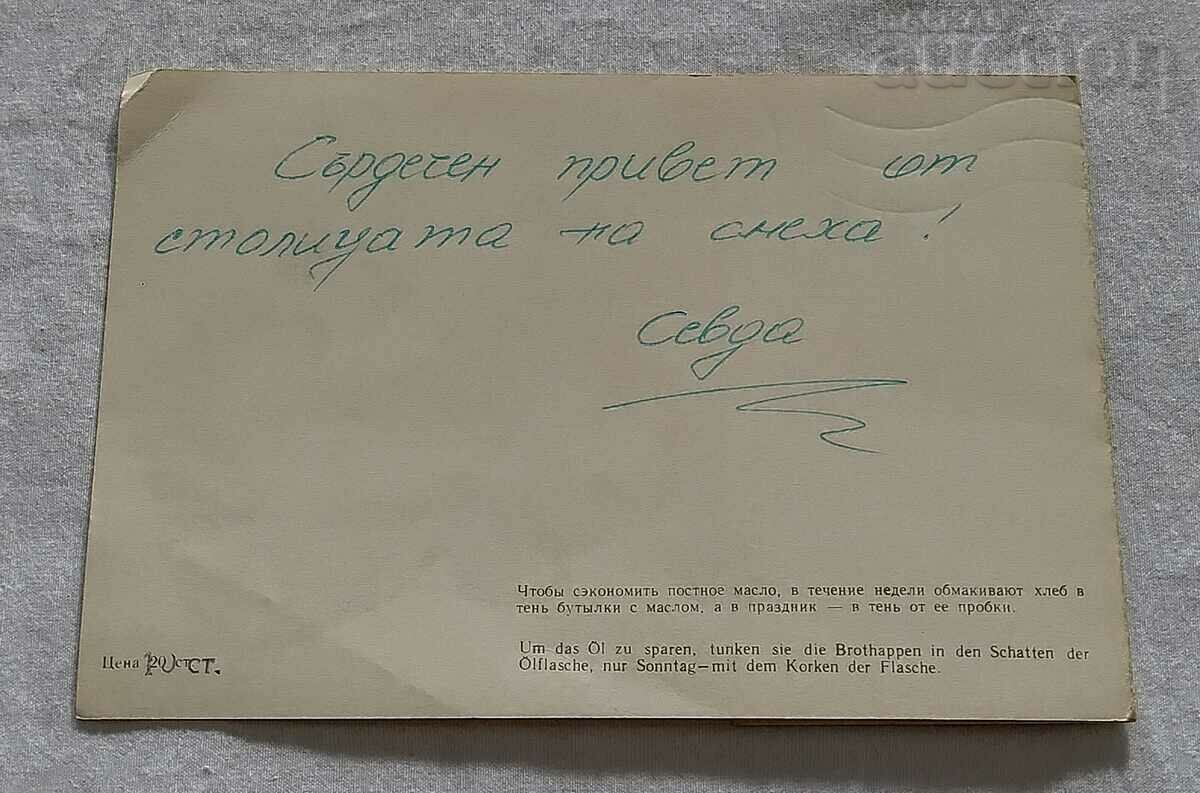 аукцион
Сърдечен привет от
столицата на смеха!
Севда
Чтобы сэкономить постное масло, в течение недели обмакивают хлеб в
тень бутылки с маслом, а в праздник — в тень от ее пробки.
Um das Öl zu sparen, tunken sie die Brothappen in den Schatten der
Ölflasche, nur Sonntag—mit dem Korken der Flasche.
Цена